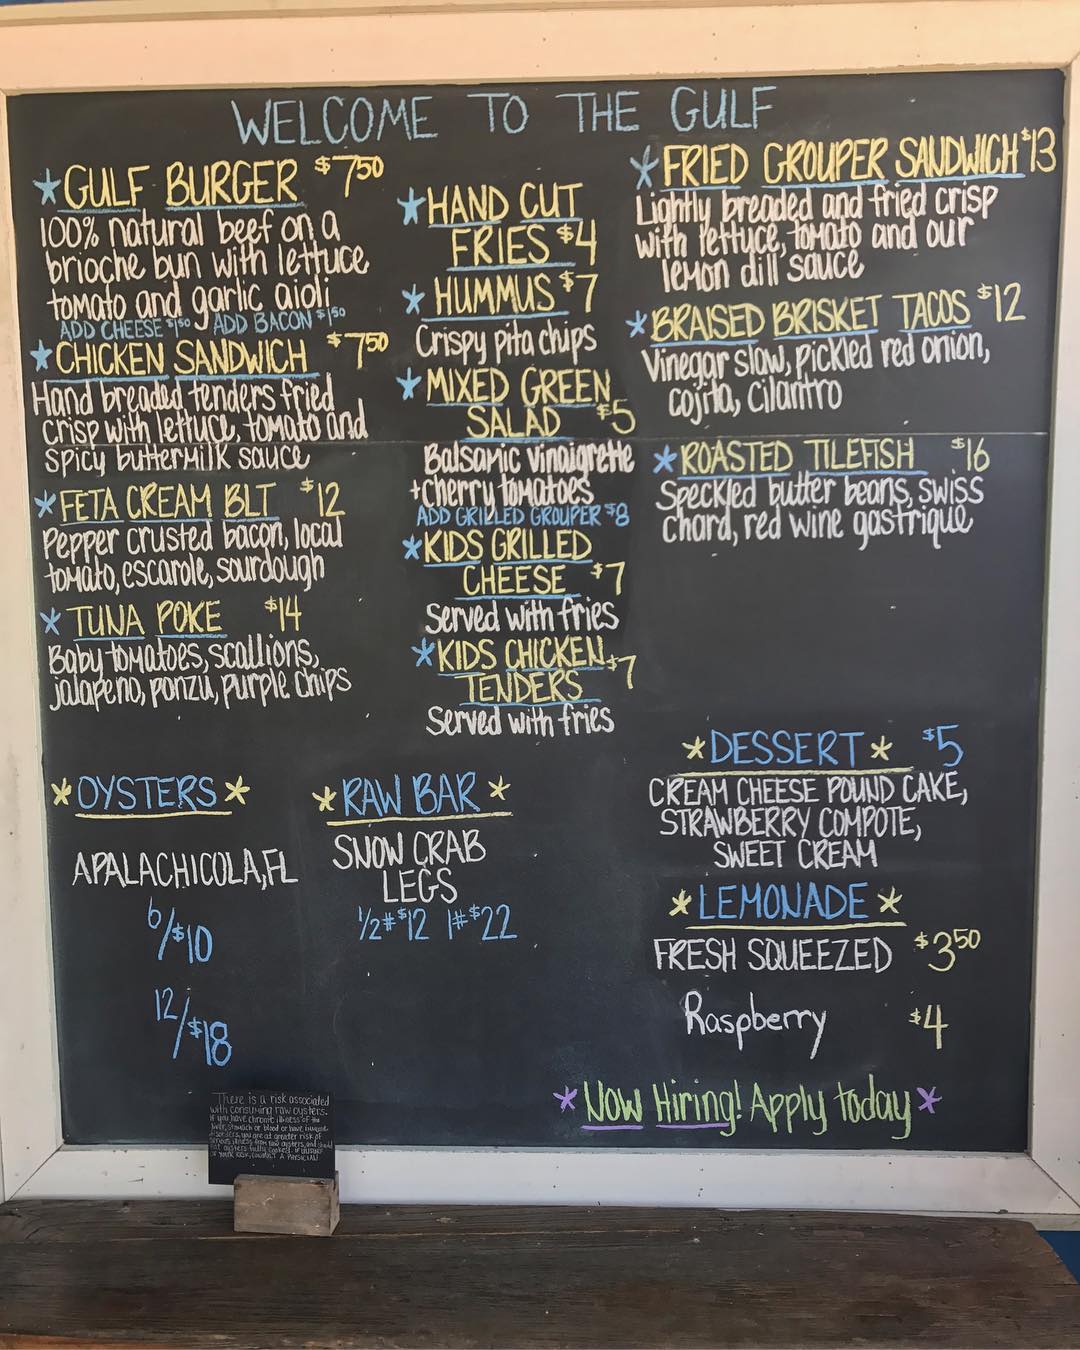 WELCOME TO THE GULF
* GULF BURGER $7.50
100% natural beef on a
brioche bun with lettuce
tomato and garlic aioli
ADD CHEESE $1.50 ADD BACON $1.50
* CHICKEN SANDWICH $7.50
Hand breaded tenders fried
crisp with lettuce, tomato and
spicy buttermilk sauce
* FETA CREAM BLT $12
Pepper crusted bacon, local
tomato, escarole, sourdough
* TUNA POKE $14
Baby tomatoes, scallions,
jalapeno, ponzu, purple chips
* HAND CUT
FRIES $4
* HUMMUS $7
Crispy pita chips
* MIXED GREEN
SALAD $5
Balsamic vinaigrette
+cherry tomatoes
ADD GRILLED GROUPER $8
* KIDS GRILLED
CHEESE $7
Served with fries
* KIDS CHICKEN $7
TENDERS
Served with fries
* FRIED GROUPER SANDWICH $13
Lightly breaded and fried crisp
with lettuce, tomato and our
lemon dill sauce
* BRAISED BRISKET TACOS $12
Vinegar slaw, pickled red onion,
cojita, cilantro
* ROASTED TILEFISH $16
Speckled butter beans, swiss
chard, red wine gastrique
* OYSTERS *
APALACHICOLA, FL
6/$10
12/$18
* RAW BAR *
SNOW CRAB
LEGS
1/2# $12 1# $22
* DESSERT * $5
CREAM CHEESE POUND CAKE,
STRAWBERRY COMPOTE,
SWEET CREAM
* LEMONADE *
FRESH SQUEEZED $3.50
Raspberry $4
* Now Hiring! Apply today *
There is a risk associated
with consuming raw oysters.
if you have chronic illness of the
liver, stomach or blood or have immune
disorders, you are at greater risk of
serious illness from raw oysters, and should
eat oysters fully cooked. If unsure
of your risk, consult a physician!